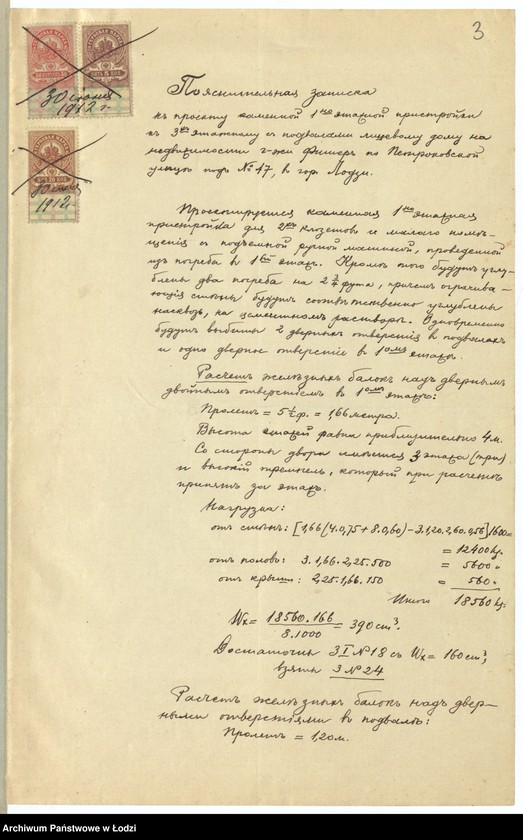 3
30 июня
1912 г.
1912 г.
Пояснительная записка
къ проекту каменной 1но этажной пристройки
къ 3хъ этажному съ подвалами лицевому дому на
недвижимости г-жи Фишеръ по Петроковской
улицѣ подъ № 47, въ гор. Лодзи.
Проектируется каменная 1но этажная
пристройка для 2хъ клозетовъ и малаго помѣ-
щенія съ подъемной ручной машиной, проведенной
изъ погреба въ 1ый этажъ. Кромѣ того будутъ углу-
блены два погреба на 2 3/4 фута, причемъ ограничива-
ющія стѣны будутъ соотвѣтственно углублены
насквозь, на цементномъ растворѣ. Одновременно
будутъ выбиты 2 дверныхъ отверстія въ подвалахъ
и одно дверное отверстіе въ 1омъ этажѣ.
Расчетъ желѣзныхъ балокъ надъ двернымъ
двойнымъ отверстіемъ въ 1омъ этажѣ:
Пролетъ = 5 1/2 ф. = 1,66 метра.
Высота этажей равна приблизительно 4 м.
Со стороны двора имѣется 3 этажа (три)
и высокій тремпель, который при расчетѣ
принятъ за этажъ.
Нагрузка:
отъ стѣнъ: [1,66(4.0,75 + 8.0,60) – 3.1,20.2,60.0,56] 1600 =
= 12400 kg.
отъ половъ: 3.1,66.2,25.500 = 5600 "
отъ крыши: 2,25.1,66.150 = 560 "
Итого 18560 kg.
Wx = 18560.166 / 8.1000 = 390 cm³.
Достаточны 3 I № 18 съ Wx = 160 cm³,
взяты 3 № 24
Расчетъ желѣзныхъ балокъ надъ двер-
ными отверстіями въ подвалѣ:
Пролетъ = 1,20 м.
Archiwum Państwowe w Łodzi